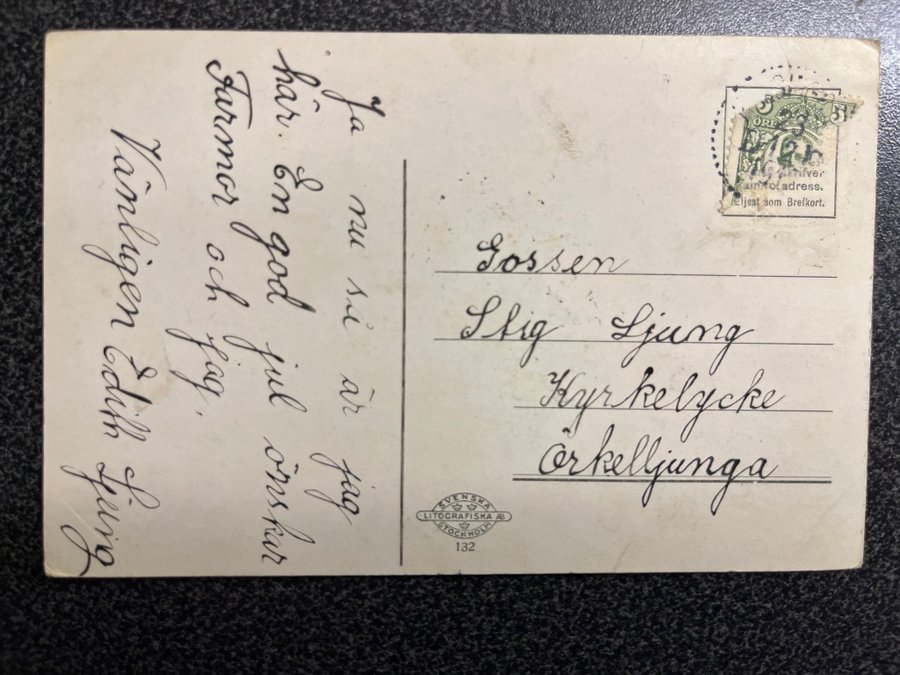 Ja nu så är jag
här. En god jul önskar
Farmor och jag.
Vänligen Edith Ljung
ÖRE
23
adress.
Eljest som Brefkort.
Gossen
Stig Ljung
Kyrkelycke
Örkelljunga
SVENSKA
LITOGRAFISKA AB
STOCKHOLM
132